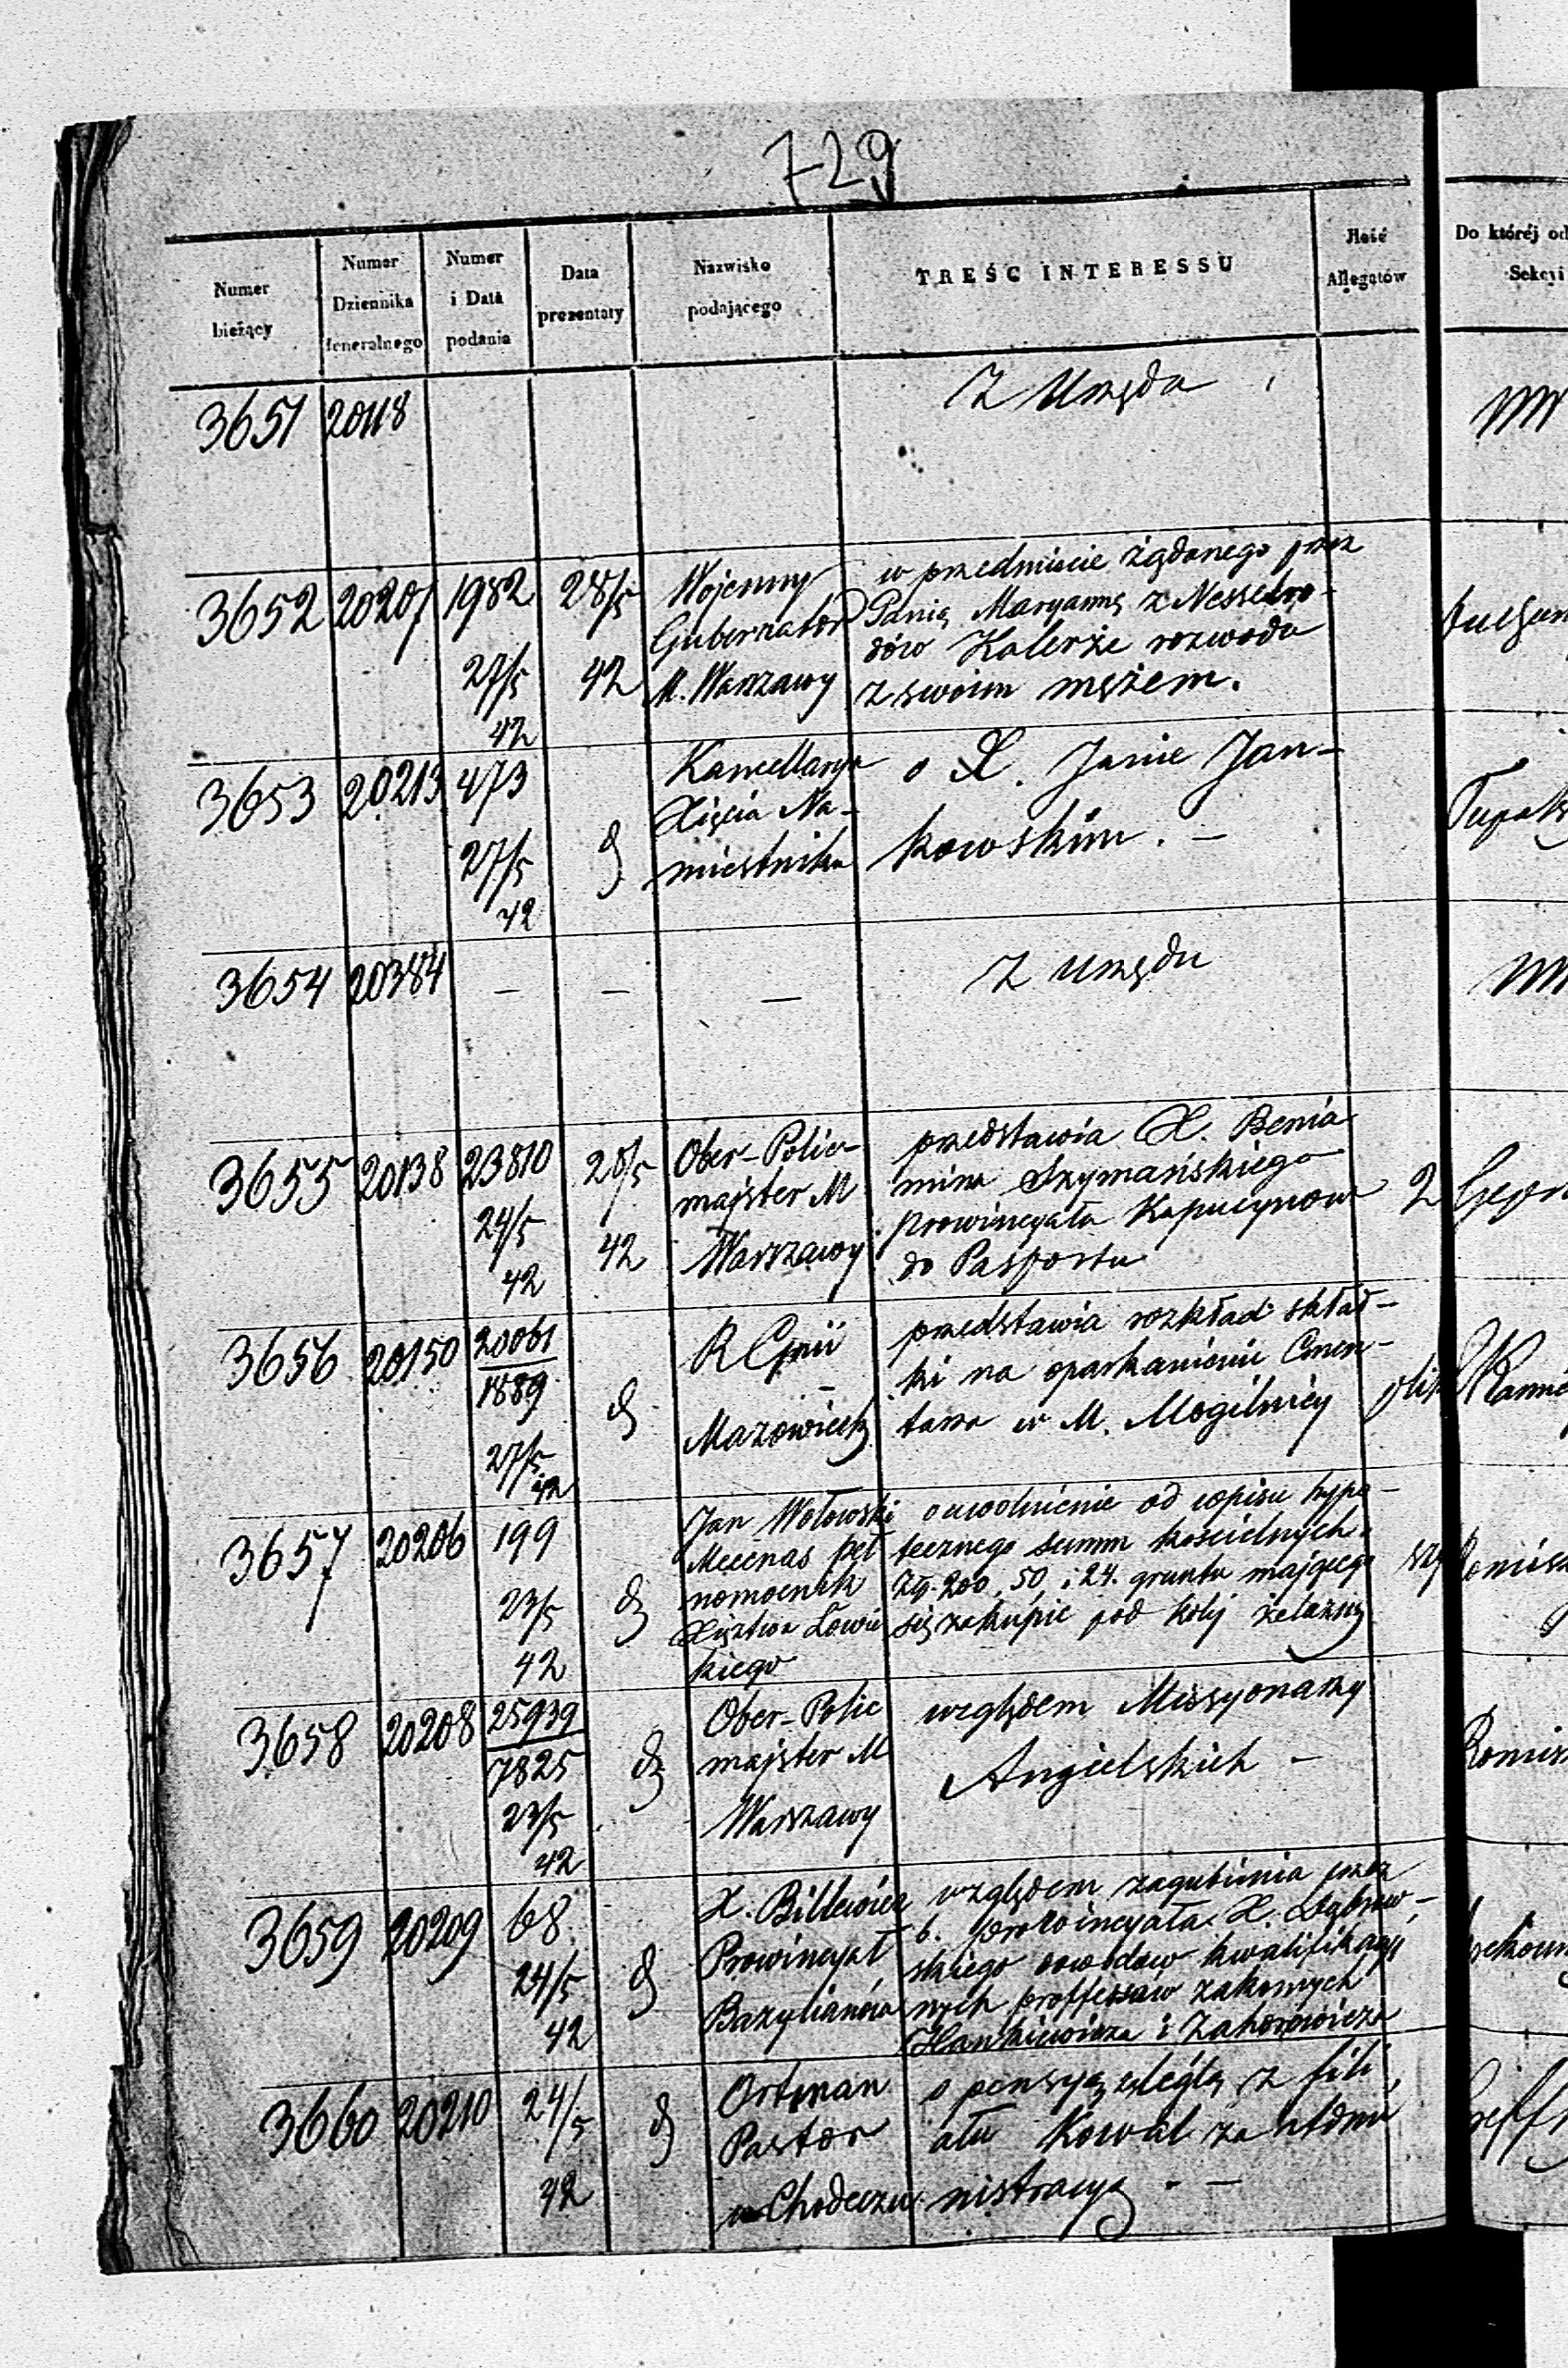 729
Numer bieżący
Numer Dziennika Jeneralnego
Numer i Data podania
Data prezentaty
Nazwisko podającego
TREŚĆ INTERESSU
Jlość Allegatów
Do któréj od
Sekcyi
3651 20118
Z Urzędu
3652 20207 1982 27/5 42 28/5 42
Wojenny
Gubernator
M. Warszawy
w przedmiocie żądanego przez
Panią Maryannę z Nesselro-
dów Kalerże rozwodu
z swoim mężem.
3653 20213 473 27/5 42
Kancellarya
Xięcia Na-
miestnika
o X. Janie Jan-
kowskim. —
3654 20384 — — —
Z urzędu
3655 20138 23810 24/5 42 28/5 42
Ober-Polic-
majster M
Warszawy
przedstawia X. Benia
mina Szymańskiego
Prowincyała Kapucynów
do Pasportu
2
3656 20150 20061 1889 27/5 42
R Gnii
Mazowieck
przedstawia rozkład skład-
ki na oparkanienie Cmen-
tarza w M. Mogilnicy
plik
3657 20206 199 23/5 42
Jan Wołowski
Mecenas peł
nomocnik
Xięztwa Łowic
kiego
o uwolnienie od wpisu hypo-
tecznego summ kościelnych
Złp. 200, 50, i 24. gruntu mającego
się zakupić pod kolej żelazną
3658 20208 25939 7825 23/5 42
Ober-Polic
majster M
Warszawy
względem Missyonarzy
Angielskich —
3659 20209 68. 24/5 42
X. Billewicz
Prowincyał
Bazylianów
względem zagubienia przez
b. prowincyała X. Dąbrow-
skiego dowodów kwalifikacyj
nych proffessów zakonnych
Hankiewicza i Zahorowicza
3660 20210 24/5 42
Ortman
Pastor
w Chodeczu
o pensyą zległą z fili
ału Kowal za admi
nistracyą. —